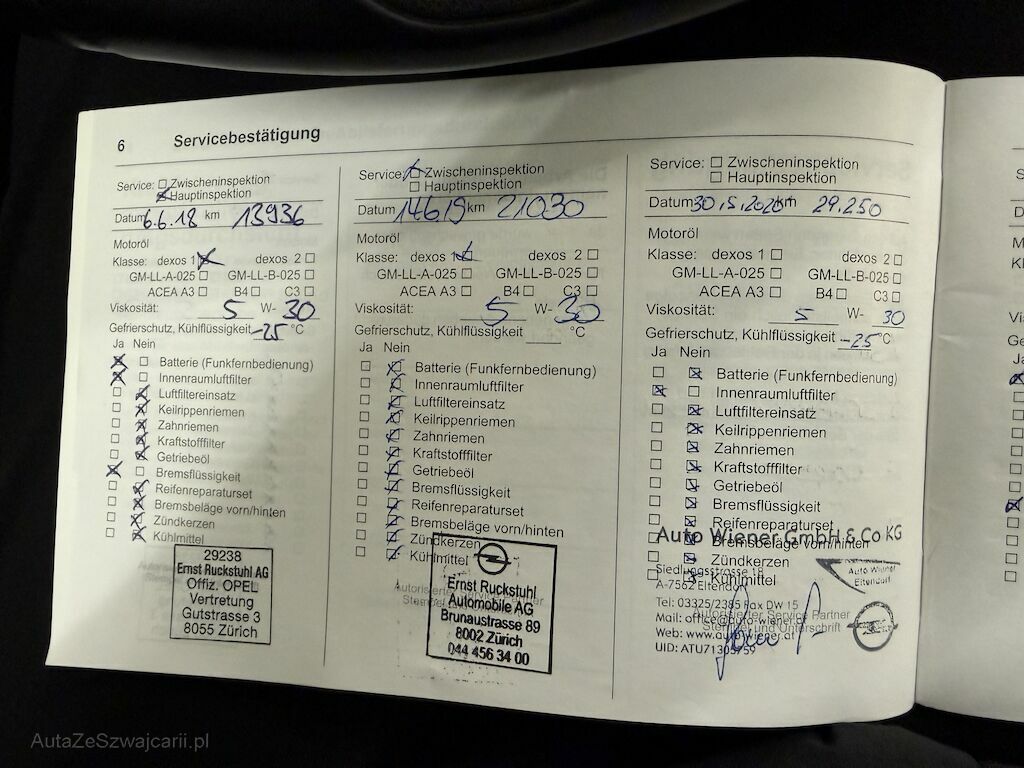 6 Servicebestätigung
Service: Zwischeninspektion
Hauptinspektion
Datum 6.6.18 km 13936
Motoröl
Klasse: dexos 1 dexos 2
GM-LL-A-025 GM-LL-B-025
ACEA A3 B4 C3
Viskosität: 5 W- 30
Gefrierschutz, Kühlflüssigkeit -25 °C
Ja Nein
Batterie (Funkfernbedienung)
Innenraumluftfilter
Luftfiltereinsatz
Keilrippenriemen
Zahnriemen
Kraftstofffilter
Getriebeöl
Bremsflüssigkeit
Reifenreparaturset
Bremsbeläge vorn/hinten
Zündkerzen
Kühlmittel
29238
Ernst Ruckstuhl AG
Offiz. OPEL
Vertretung
Gutstrasse 3
8055 Zürich
Service: Zwischeninspektion
Hauptinspektion
Datum 14.6.19 km 21030
Motoröl
Klasse: dexos 1 dexos 2
GM-LL-A-025 GM-LL-B-025
ACEA A3 B4 C3
Viskosität: 5 W- 30
Gefrierschutz, Kühlflüssigkeit °C
Ja Nein
Batterie (Funkfernbedienung)
Innenraumluftfilter
Luftfiltereinsatz
Keilrippenriemen
Zahnriemen
Kraftstofffilter
Getriebeöl
Bremsflüssigkeit
Reifenreparaturset
Bremsbeläge vorn/hinten
Zündkerzen
Kühlmittel
Ernst Ruckstuhl
Automobile AG
Brunaustrasse 89
8002 Zürich
044 456 34 00
Service: Zwischeninspektion
Hauptinspektion
Datum 30.5.2020 km 29.250
Motoröl
Klasse: dexos 1 dexos 2
GM-LL-A-025 GM-LL-B-025
ACEA A3 B4 C3
Viskosität: 5 W- 30
Gefrierschutz, Kühlflüssigkeit -25 °C
Ja Nein
Batterie (Funkfernbedienung)
Innenraumluftfilter
Luftfiltereinsatz
Keilrippenriemen
Zahnriemen
Kraftstofffilter
Getriebeöl
Bremsflüssigkeit
Reifenreparaturset
Bremsbeläge vorn/hinten
Zündkerzen
Kühlmittel
Auto Wiener GmbH & Co KG
Siedlungsstrasse 18
A-7562 Eltendorf
Auto Wiener
Eltendorf
Tel: 03325/2385 Fax DW 15
Autorisierter Service Partner
Mail: office@auto-wiener.at
Stempel und Unterschrift
Web: www.autowiener.at
UID: ATU71305759
AutaZeSzwajcarii.pl